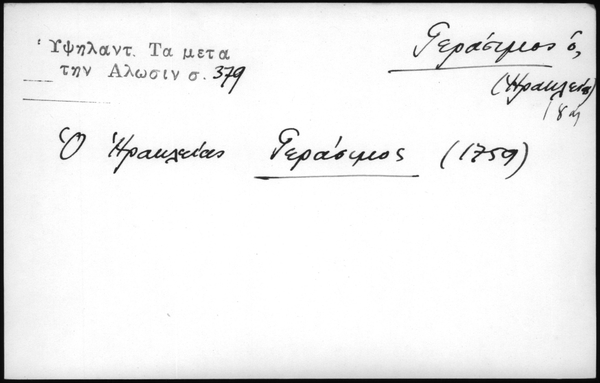 Ὑψηλαντ. Τα μετα
την Αλωσιν σ. 379
Γεράσιμος ὁ,
(Ἡρακλείας)
18η
Ὁ Ἡρακλείας Γεράσιμος (1759)